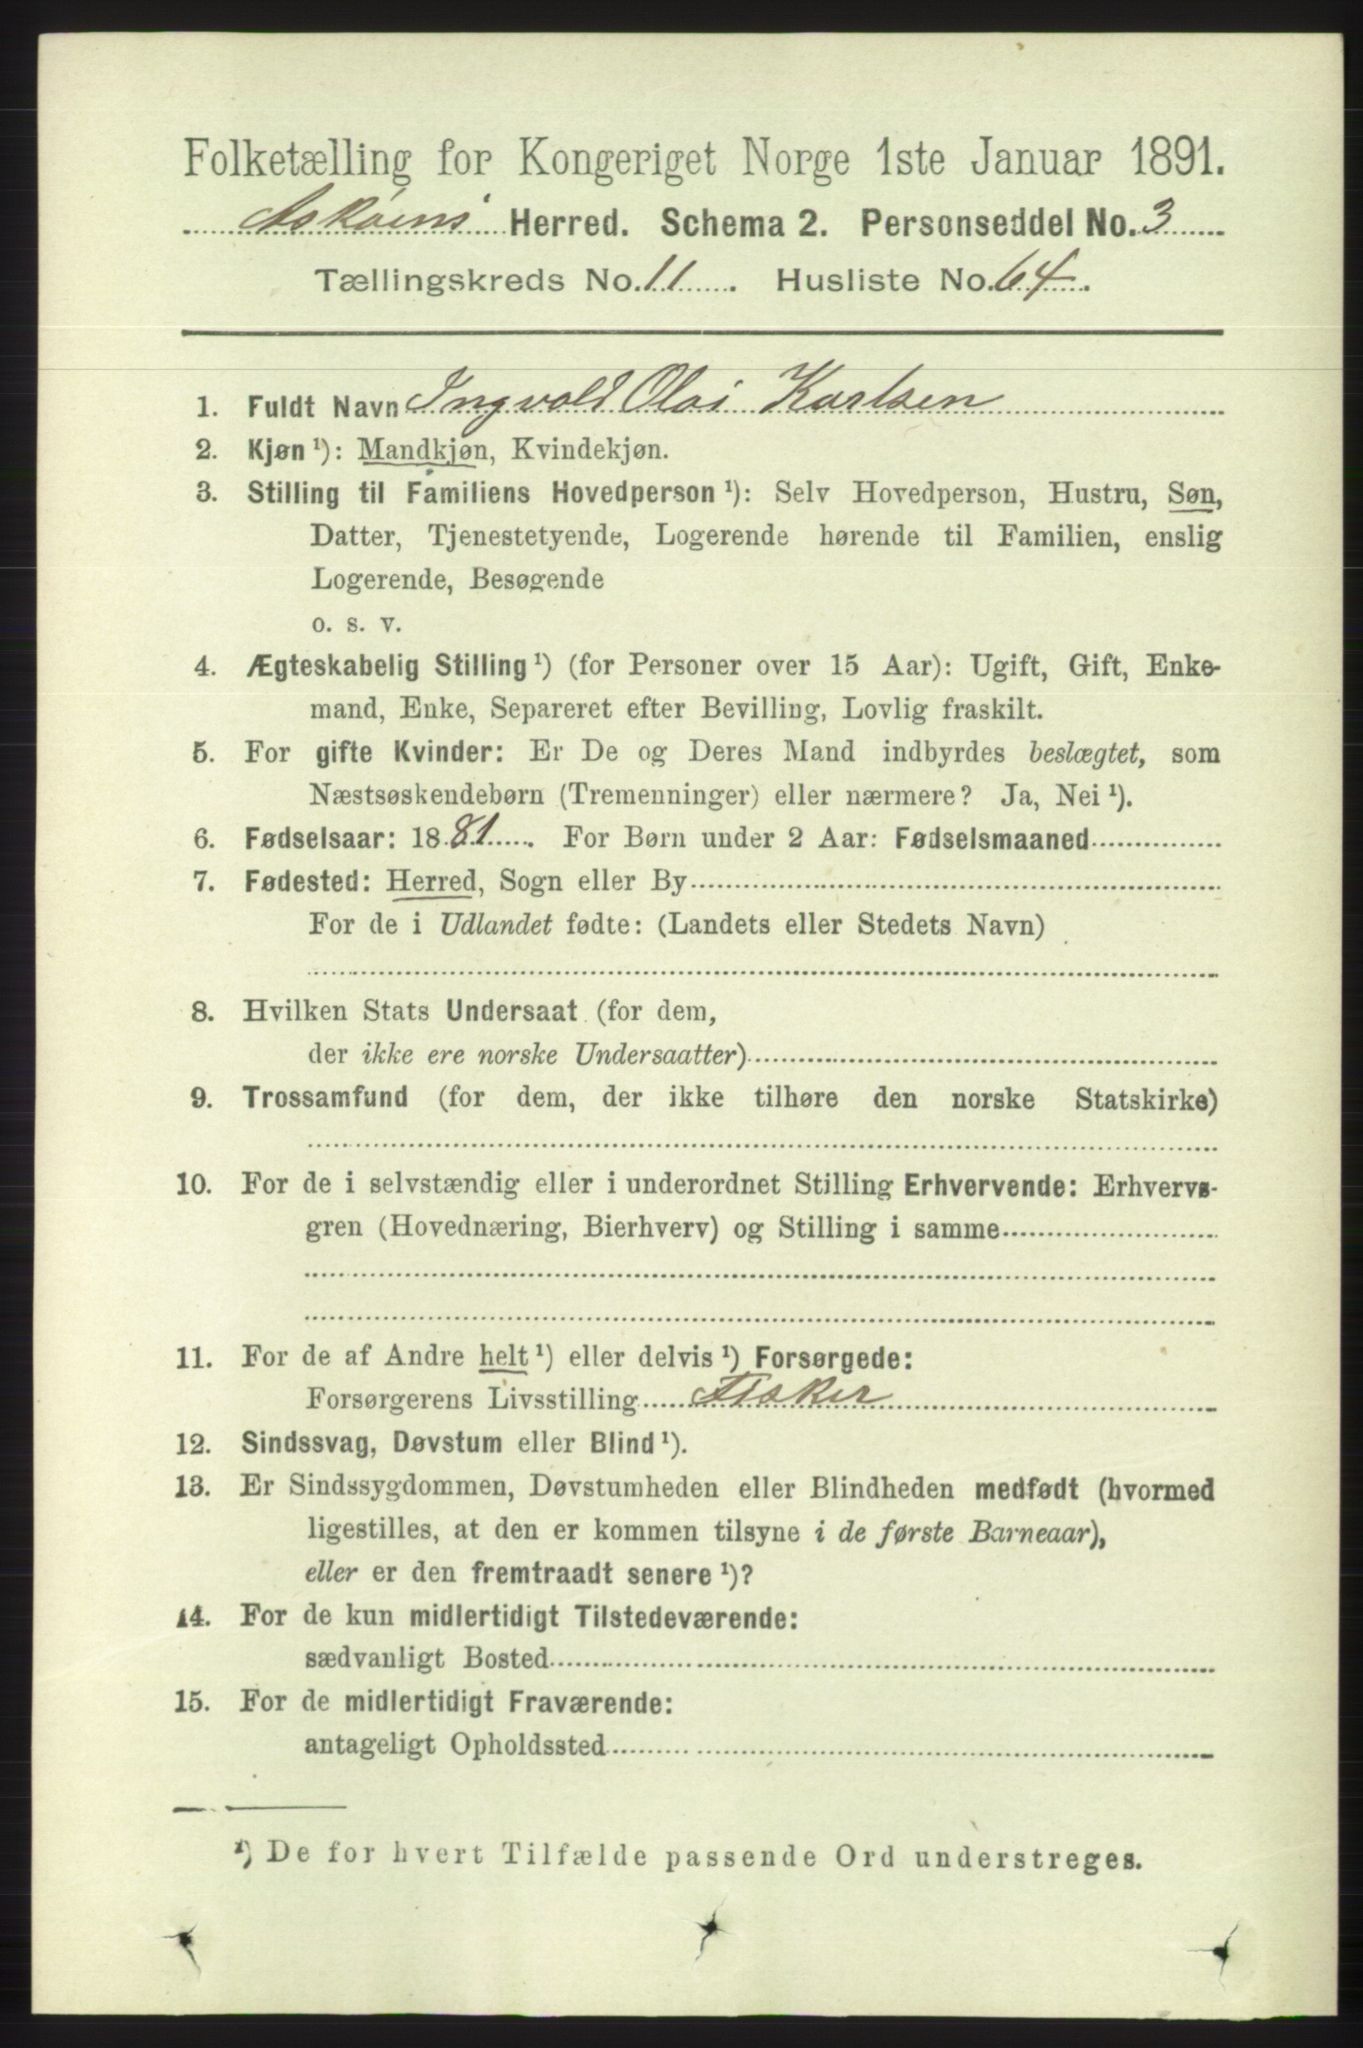 Folketælling for Kongeriget Norge 1ste Januar 1891.
Askøens Herred. Schema 2. Personseddel No. 3
Tællingskreds No. 11. Husliste No. 64.
1. Fuldt Navn Ingvold Olai Karlsen
2. Kjøn ¹): Mandkjøn, Kvindekjøn.
3. Stilling til Familiens Hovedperson ¹): Selv Hovedperson, Hustru, Søn,
Datter, Tjenestetyende, Logerende hørende til Familien, enslig
Logerende, Besøgende
o. s. v.
4. Ægteskabelig Stilling ¹) (for Personer over 15 Aar): Ugift, Gift, Enke-
mand, Enke, Separeret efter Bevilling, Lovlig fraskilt.
5. For gifte Kvinder: Er De og Deres Mand indbyrdes beslægtet, som
Næstsøskendebørn (Tremenninger) eller nærmere? Ja, Nei ¹).
6. Fødselsaar: 1881. For Børn under 2 Aar: Fødselsmaaned
7. Fødested: Herred, Sogn eller By
For de i Udlandet fødte: (Landets eller Stedets Navn)
8. Hvilken Stats Undersaat (for dem,
der ikke ere norske Undersaatter)
9. Trossamfund (for dem, der ikke tilhøre den norske Statskirke)
10. For de i selvstændig eller i underordnet Stilling Erhvervende: Erhvervs-
gren (Hovednæring, Bierhverv) og Stilling i samme
11. For de af Andre helt ¹) eller delvis ¹) Forsørgede:
Forsørgerens Livsstilling Fisker
12. Sindssvag, Døvstum eller Blind ¹).
13. Er Sindssygdommen, Døvstumheden eller Blindheden medfødt (hvormed
ligestilles, at den er kommen tilsyne i de første Barneaar),
eller er den fremtraadt senere ¹)?
14. For de kun midlertidigt Tilstedeværende:
sædvanligt Bosted
15. For de midlertidigt Fraværende:
antageligt Opholdssted
¹) De for hvert Tilfælde passende Ord understreges.